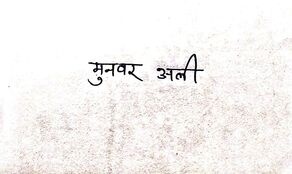 मुनवर अली